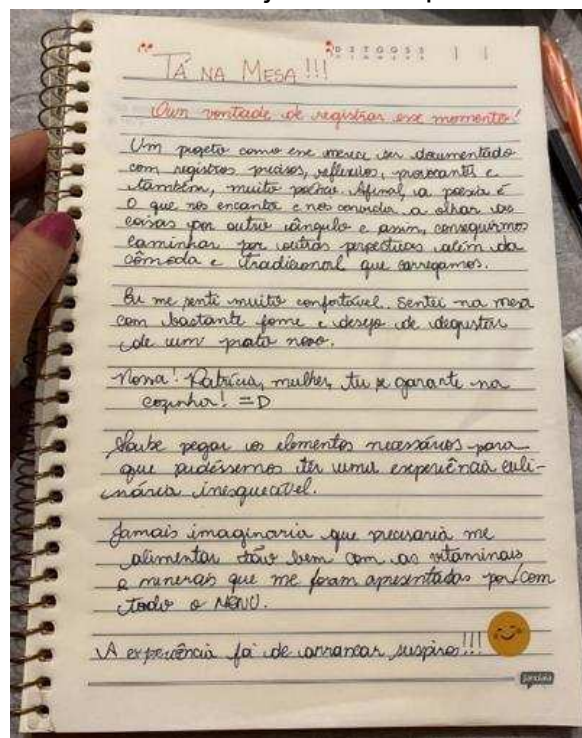 D S T Q Q S S
TÁ NA MESA!!!
Oun vontade de registrar esse momento!
Um projeto como esse merece ser documentado
com registros precisos, reflexivos, provocantes e
também, muito poético. Afinal, a poesia é
o que nos encanta e nos convida a olhar as
coisas por outro ângulo e assim, conseguirmos
caminhar por outras perspectivas além da
cômoda e tradicional que carregamos.
Eu me senti muito confortável. Sentei na mesa
com bastante fome e desejo de degustar
de um prato novo.
Nossa! Patrícia, mulher, tu se garante na
cozinha! =D
Soube pegar os elementos necessários para
que pudéssemos ter uma experiência culi-
nária inesquecível.
Jamais imaginaria que precisaria me
alimentar tão bem com as vitaminas
e minerais que me foram apresentadas por/com
todo o MENU.
A experiência foi de arrancar suspiros!!!
jandaia